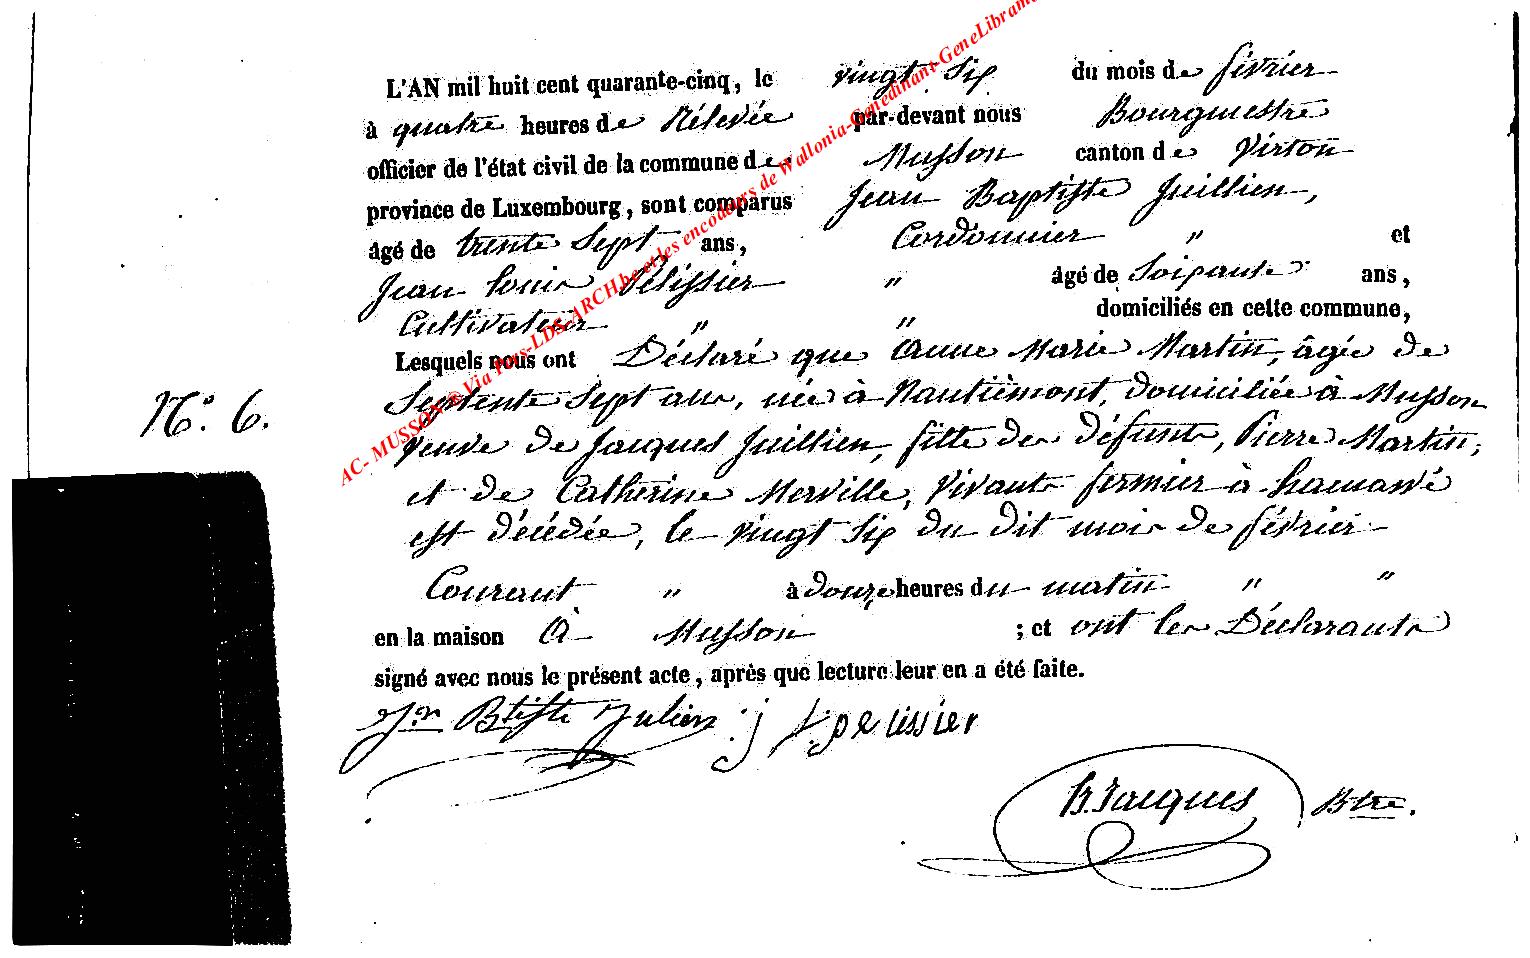 L'AN mil huit cent quarante-cinq, le vingt Six du mois de février
à quatre heures de Rélevée par-devant nous Bourgmestre
officier de l'état civil de la commune de Musson canton de Virton
province de Luxembourg, sont comparus Jean Baptiste Juillien,
âgé de trente Sept ans, Cordonnier " et
Jean Louis Pélissier " âgé de Soixante ans,
Cultivateur " " domiciliés en cette commune,
Lesquels nous ont Déclaré que Anne Marie Martin, âgée de
N.º 6. Septente Sept ans, née à domiciliée à Musson
veuve de Jacques Juillien, fille des défunts, Pierre Martin,
et de Catherine Merville, vivants fermier à
est décédée, le vingt Six du dit mois de février
Courant " à douze heures du matin " "
en la maison à Musson ; et ont les Déclarants
signé avec nous le présent acte, après que lecture leur en a été faite.
Jn Btiste Julien j L pelissier
B. Jacques Btre.
AC- MUSSON ® Via Pros-LDS-ARCH.be et les encodeurs de Wallonia-Genedinant-GeneLibrama